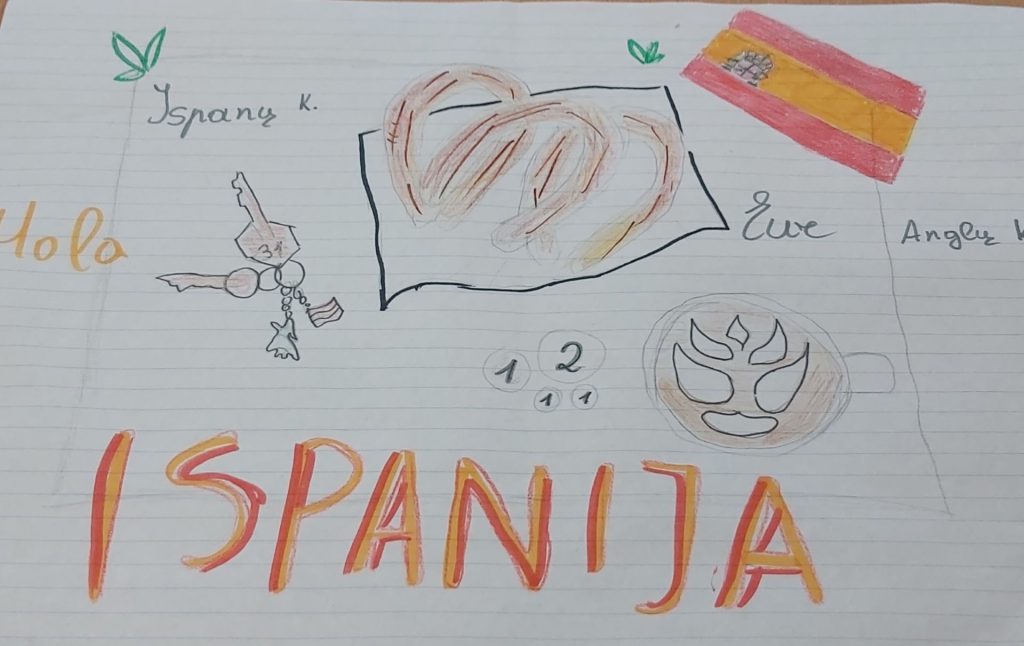 Ispanų K.
Hola
31
Ewe
Anglų K
1
2
1
1
ISPANIJA